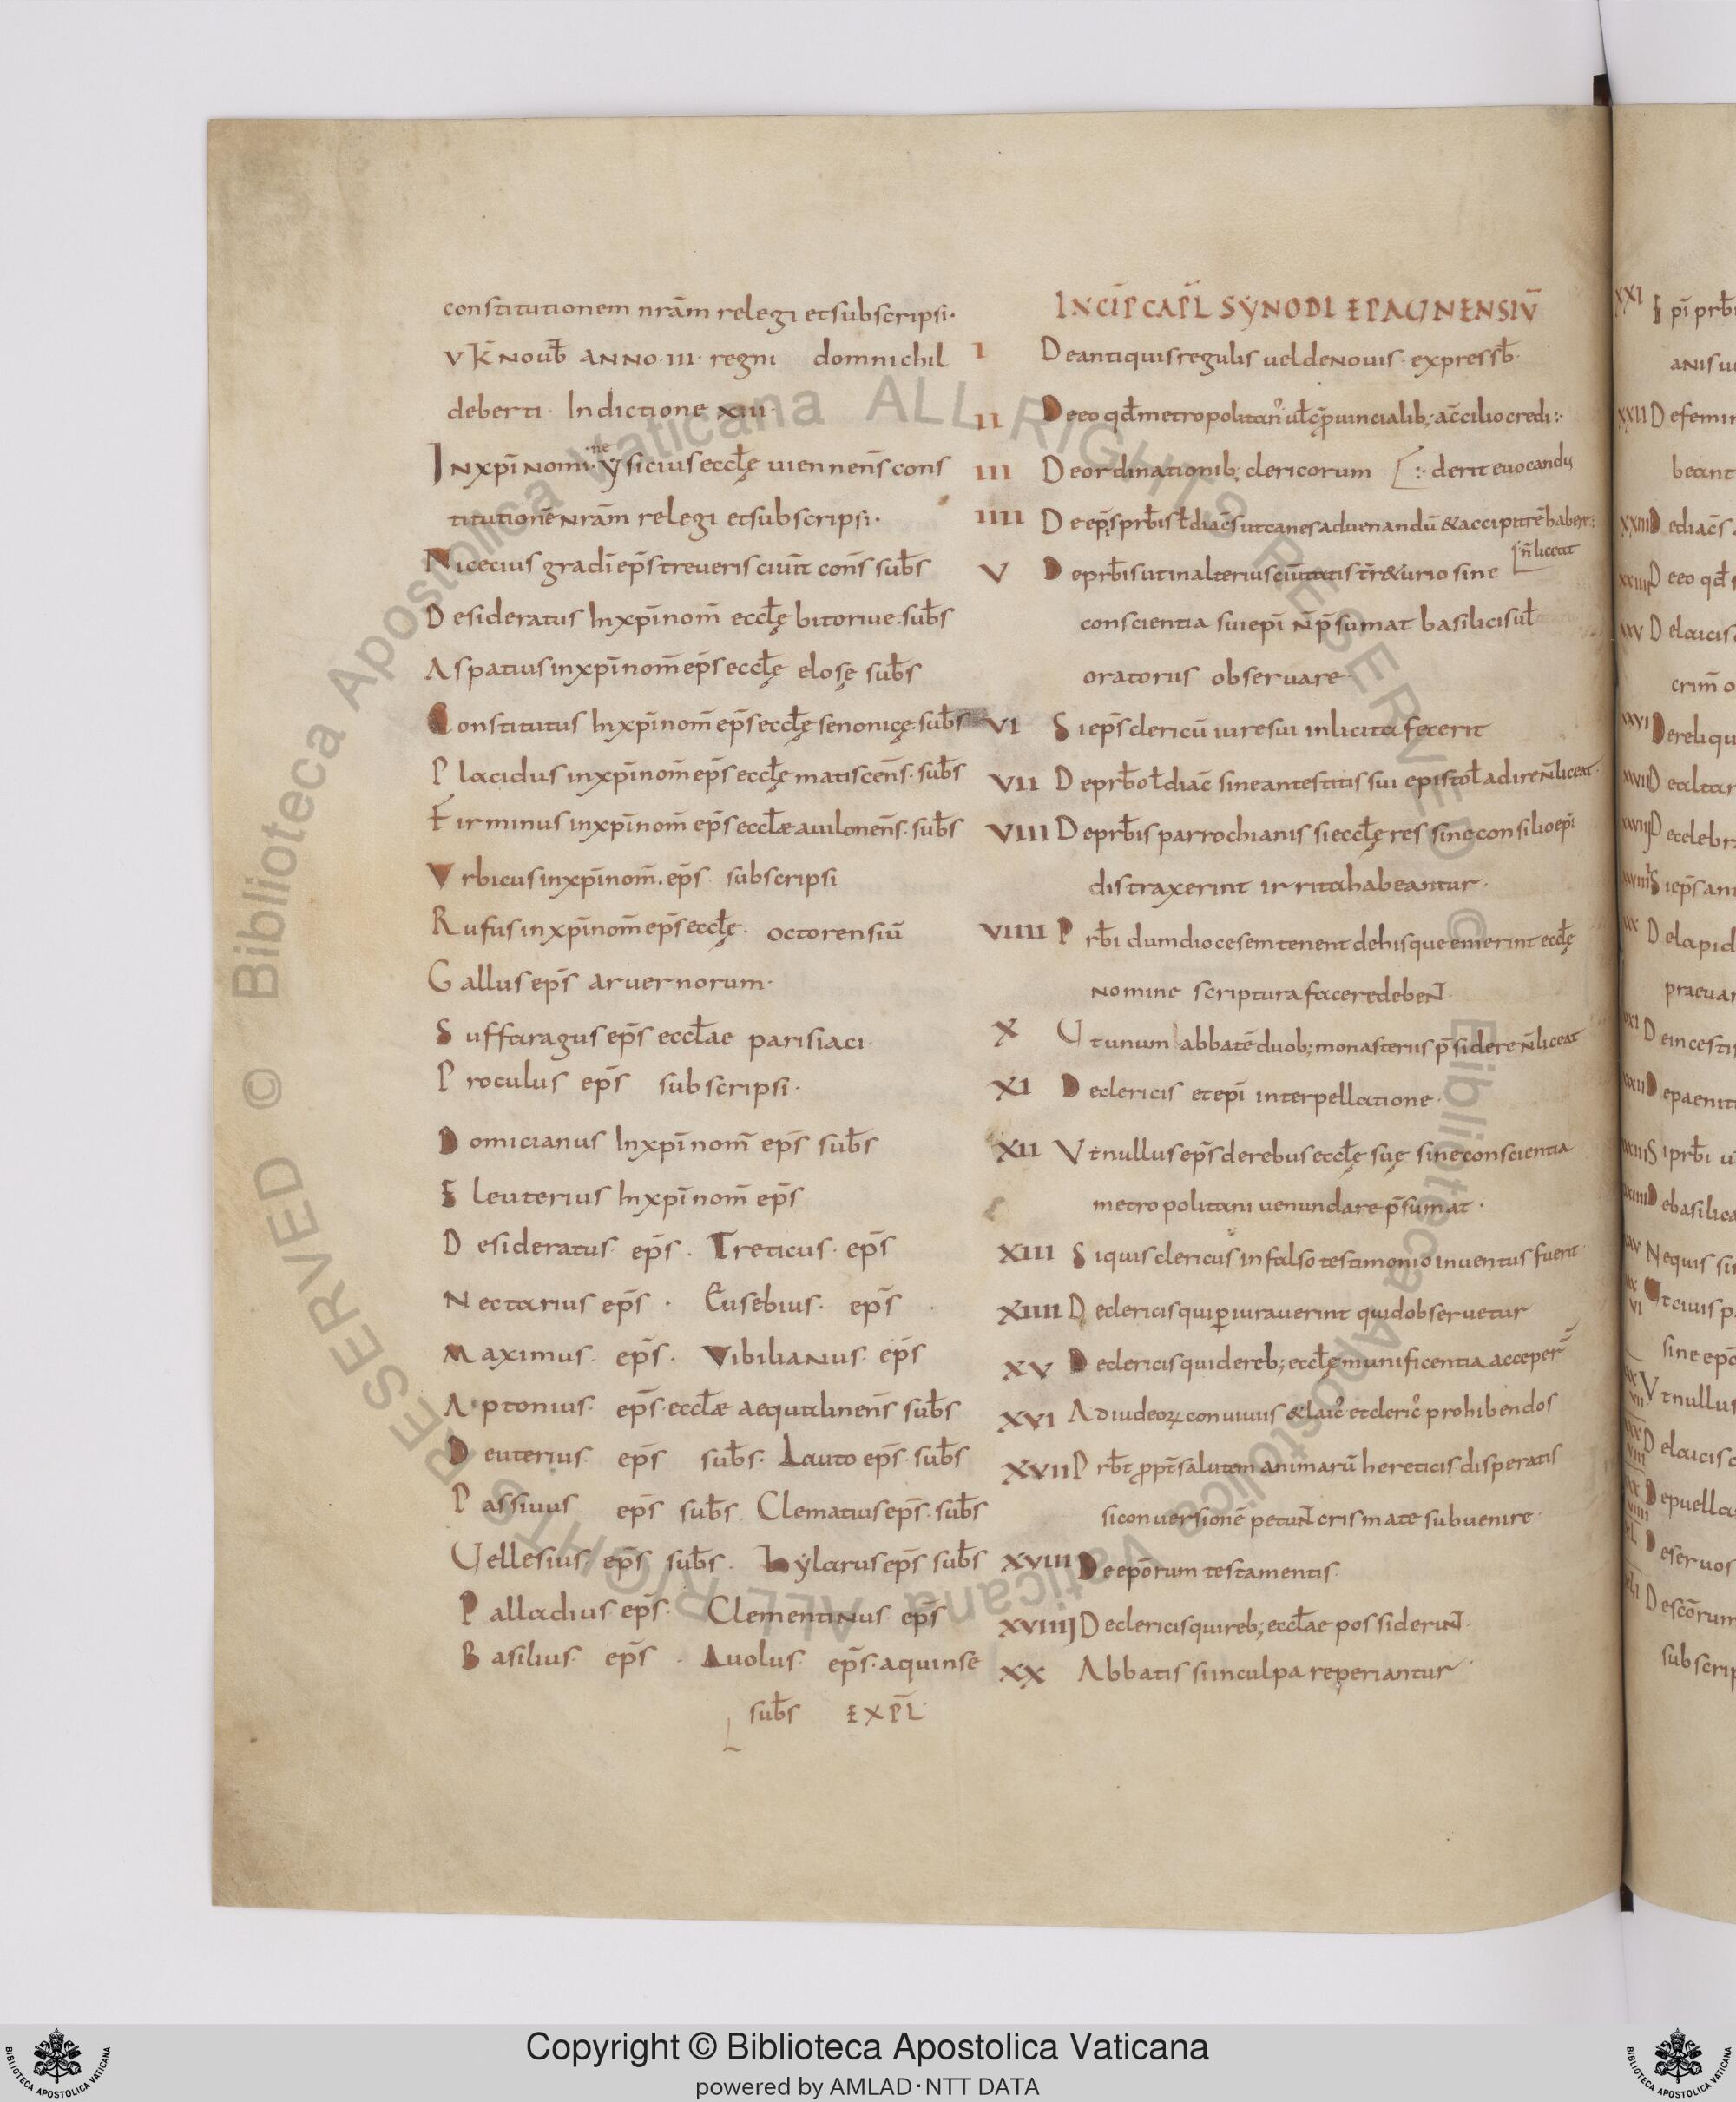 constitutionem nr̄am relegi et subscripsi·
v k̄ noub̄ anno· III· regni domni chil
deberti· Indictione XIII·
In xp̄i nomi·ne ẏsicius eccl̄ę uiennens̄ cons
titutionē nr̄am relegi et subscripsi·
Nicetius gr̄a dī ep̄s treueris ciuit̄ cons̄ sub̄s
Desideratus In xp̄i nom̄ eccl̄ę bitoriue· sub̄s
Aspatius in xp̄i nom̄ ep̄s eccl̄ę elosę sub̄s
Constitutus In xp̄i nom̄ ep̄s eccl̄ę senonicę· sub̄s
Placidus in xp̄i nom̄ ep̄s eccl̄ę matiscens̄· sub̄s
Firminus in xp̄i nom̄ ep̄s eccl̄æ auilonens̄· sub̄s
Vrbicus in xp̄i nom̄· ep̄s subscripsi
Rufus in xp̄i nom̄ ep̄s eccl̄ę· octorensiū
Gallus ep̄s aruernorum·
Suffaragus ep̄s eccl̄ae parisiaci·
Proculus ep̄s subscripsi·
Domicianus In xp̄i nom̄ ep̄s sub̄s
Eleuterius In xp̄i nom̄ ep̄s
Desideratus· ep̄s· Treticus· ep̄s
Nectarius ep̄s· Eusebius· ep̄s
Maximus· ep̄s· Vibilianus· ep̄s
Aptonius· ep̄s· eccl̄æ aequalinens̄ sub̄s
Deuterius· ep̄s sub̄s· Lauto ep̄s· sub̄s
Passiuus ep̄s sub̄s· Clematius ep̄s· sub̄s
Uellesius ep̄s sub̄s· hẏlarus ep̄s sub̄s
Palladius ep̄s· Clementinus· ep̄s
Basilius· ep̄s· Auolus· ep̄s· aquinse
sub̄s EXPL̄·
INCIP̄ CAPL̄ SẎNODI EPAUNENSIŪ
I De antiquis regulis uel de nouis· expressb̄·
II De eo qd̄ metropolitan᾿ ul̄ cp̄uincialib; ac̄cilio credi :·
III De ordinationib; clericorum [:· derit euocandus
IIII De ep̄is prb̄is l̄ diac̄s ut canes ad uenandū & accipitrē habere :·
[s· n̄ liceat
V De prb̄is ut in alterius ciuitatis t̄r&urio sine
conscientia sui epi̅ n̄ p̄sumat basilicis ul̄
oratoriis obseruare·
VI Si ep̄s clericū iure sui inlicita fecerit
VII De prb̄o l̄ diac̄ sine antestitis sui epistol̄ adire n̄ liceat·
VIII De prb̄is parrochianis si eccl̄ę res sine consilio ep̄i
distraxerint irrita habeantur·
VIIII Prb̄i dum diocesem tenent de hisque emerint eccl̄ę
nomine scriptura facere debent·
X Ut unum abbatē duob; monasteriis p̄sidere n̄ liceat
XI De clericis et ep̄i interpellatione·
XII Vt nullus ep̄s de rebus eccl̄ę suę sine conscientia
metropolitani uenundare p̄sumat·
XIII Si quis clericus in falso testimonio inuentus fuerit·
XIIII De clericis qui ꝑiurauerint quid obseruetur
XV De clericis qui de reb; eccl̄ę munificentia acceper̄
XVI A diudeoꝝ conuiuiis & laic᾿ et cleric᾿ prohibendos
XVII Prb̄t ꝓpt̄ salutem animarū hereticis disperatis
si conuersionē petunt crismate subuenire·
XVIII De ep̄orum testamentis·
XVIIII De clericis qui reb; eccl̄ae possiderunt·
XX Abbatis si in culpa reperiantur·
XXI
XXII De
beant
XXIII
De eo qd̄
De laicis
crim̄
praeua
De incestis
sine
Vt nullus
De laicis
De puella
De seruos
De sc̄orum
subscrip
© Biblioteca Apostolica Vaticana ALL RIGHTS RESERVED © Biblioteca Apostolica Vaticana ALL RIGHTS RESERVED
Copyright © Biblioteca Apostolica Vaticana
powered by AMLAD·NTT DATA
BIBLIOTECA APOSTOLICA VATICANA
BIBLIOTECA APOSTOLICA VATICANA